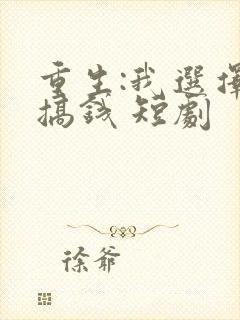 重生:我選擇
搞錢 短劇
徐爺